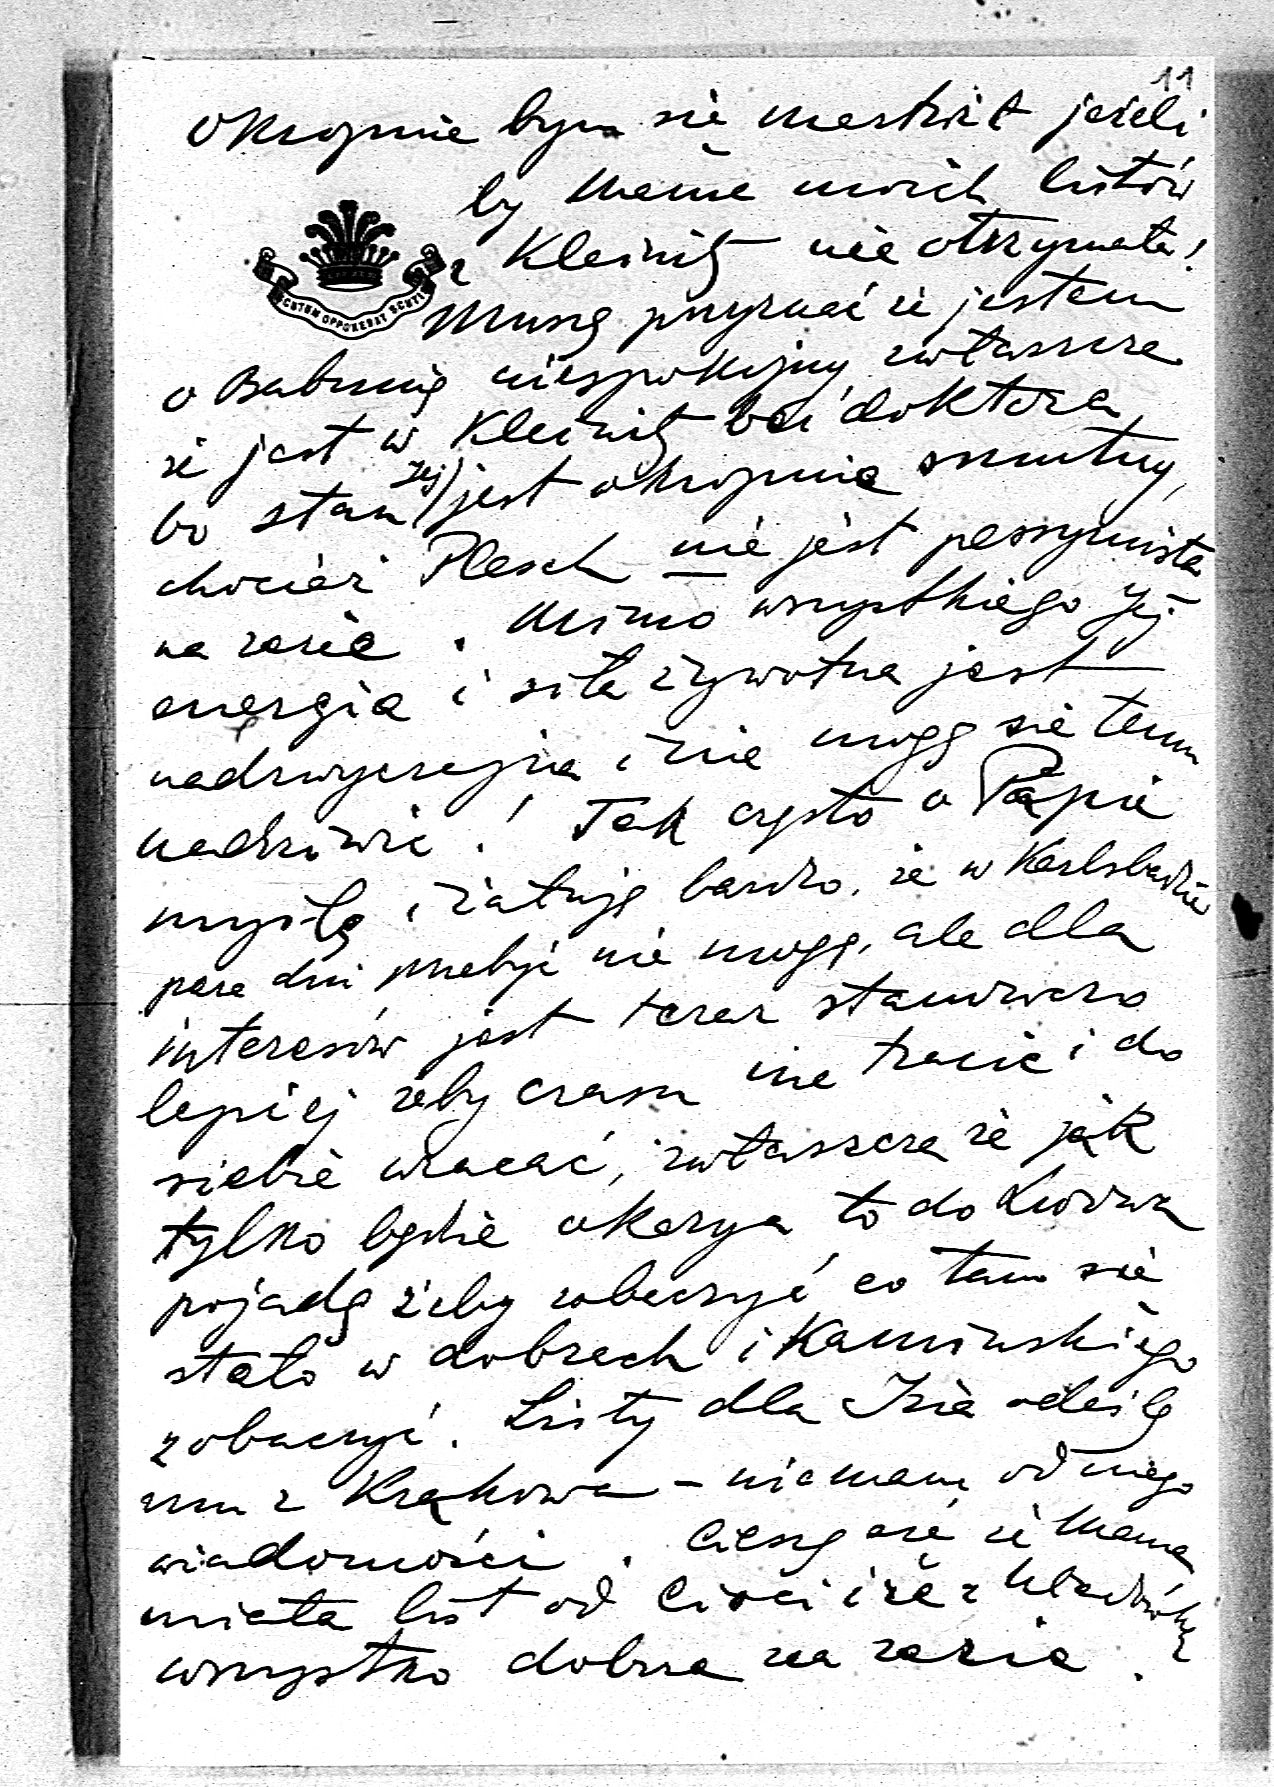 11
Okropnie bym się martwił jeżeli
by Mama moich listów
z Kleinitz nie otrzymała!
SCUTUM OPPONEBAT SCUTIS
Muszę przyznać że jestem
o Babunię niespokojny zwłaszcza
że jest w Kleinitz bez doktora
bo stan Jej jest okropnie smutny,
chociaż Plesch nie jest pessymistą
na razie. Mimo wszystkiego Jej
energia i siła żywotna jest
nadzwyczajna i nie mogę się temu
nadziwić! Tak często o Papie
myślę i żałuję bardzo, że w Karlsbadzie
parę dni przebyć nie mogę, ale dla
interesów jest teraz stanowczo
lepiej żeby czasu nie tracić i do
siebie wracać, zwłaszcza że jak
tylko będzie okazya to do Lwowa
pojadę żeby zobaczyć co tam się
stało w dobrach i Kamińskiego
zobaczyć. Listy dla Izia odeślę
mu z Krakowa – nie mam od niego
wiadomości. Cieszę się że Mama
miała list od Cioci i że z
wszystko dobrze na razie.